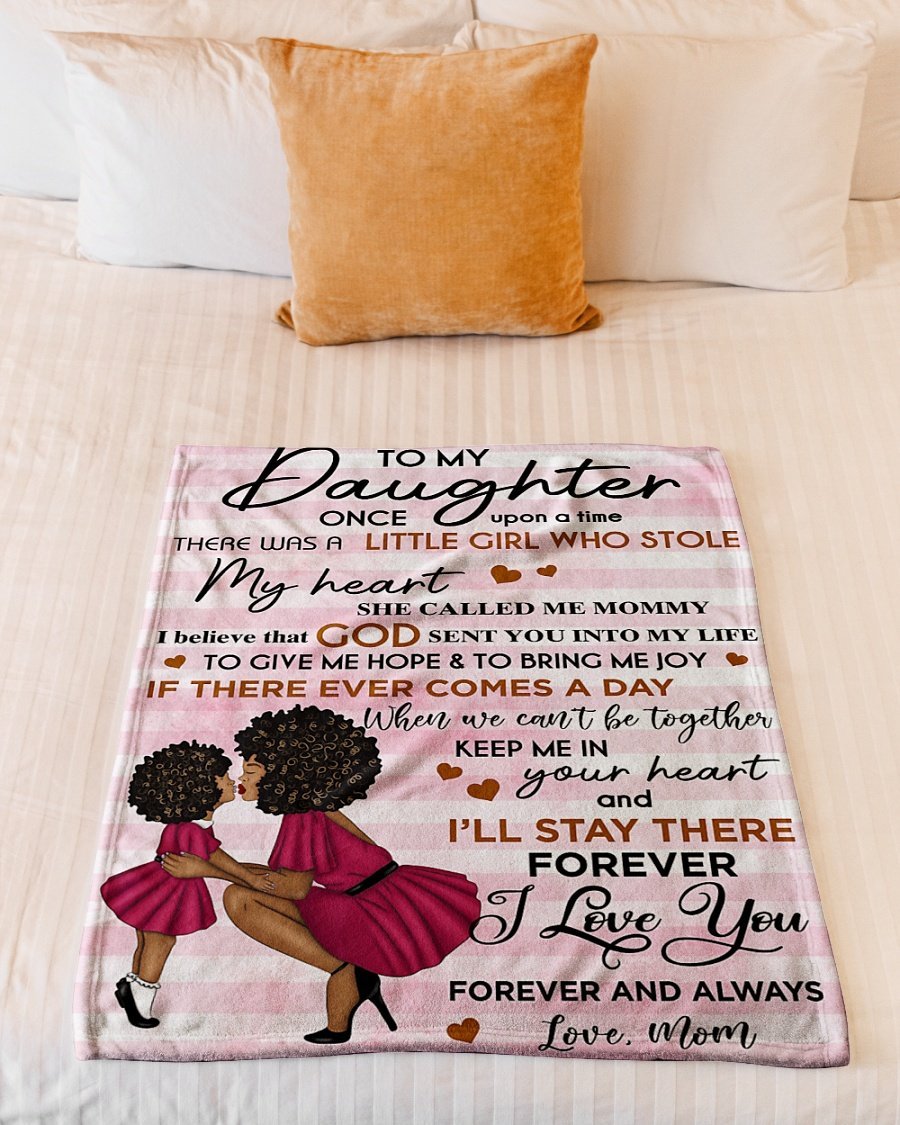 TO MY
Daughter
ONCE upon a time
THERE WAS A LITTLE GIRL WHO STOLE
My heart
SHE CALLED ME MOMMY
I believe that GOD SENT YOU INTO MY LIFE
TO GIVE ME HOPE & TO BRING ME JOY
IF THERE EVER COMES A DAY
When we can't be together
KEEP ME IN
your heart
and
I'LL STAY THERE
FOREVER
I Love You
FOREVER AND ALWAYS
Love, Mom